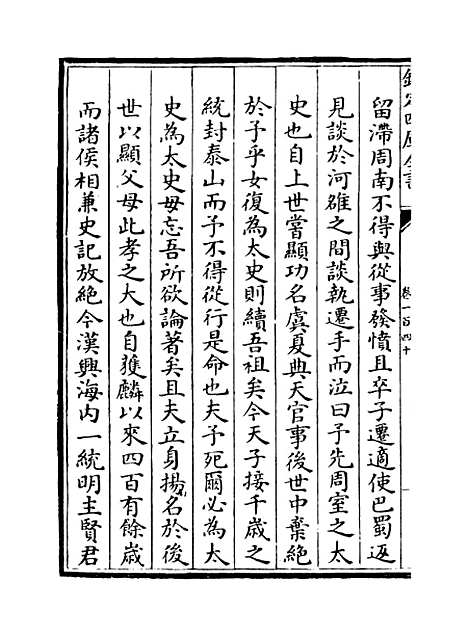 欽定四庫全書
卷一百四十
留滯周南不得與從事發憤且卒子遷適使巴蜀返
見談於河雒之間談執遷手而泣曰予先周室之太
史也自上世嘗顯功名虞夏典天官事後世中棄絶
於予乎女復為太史則續吾祖矣今天子接千歳之
統封泰山而予不得從行是命也夫予死爾必為太
史為太史毋忘吾所欲論著矣且夫立身揚名於後
世以顯父母此孝之大也自獲麟以來四百有餘歳
而諸侯相兼史記放絶今漢興海内一統明主賢君